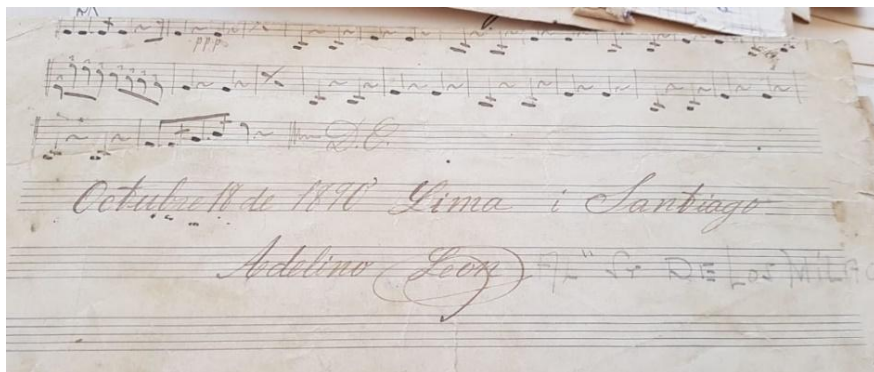 ppp
D.C.
Octubre 18 de 1890 Lima i Santiago
Adelino Leon AL" Sr DE LOS MILAG